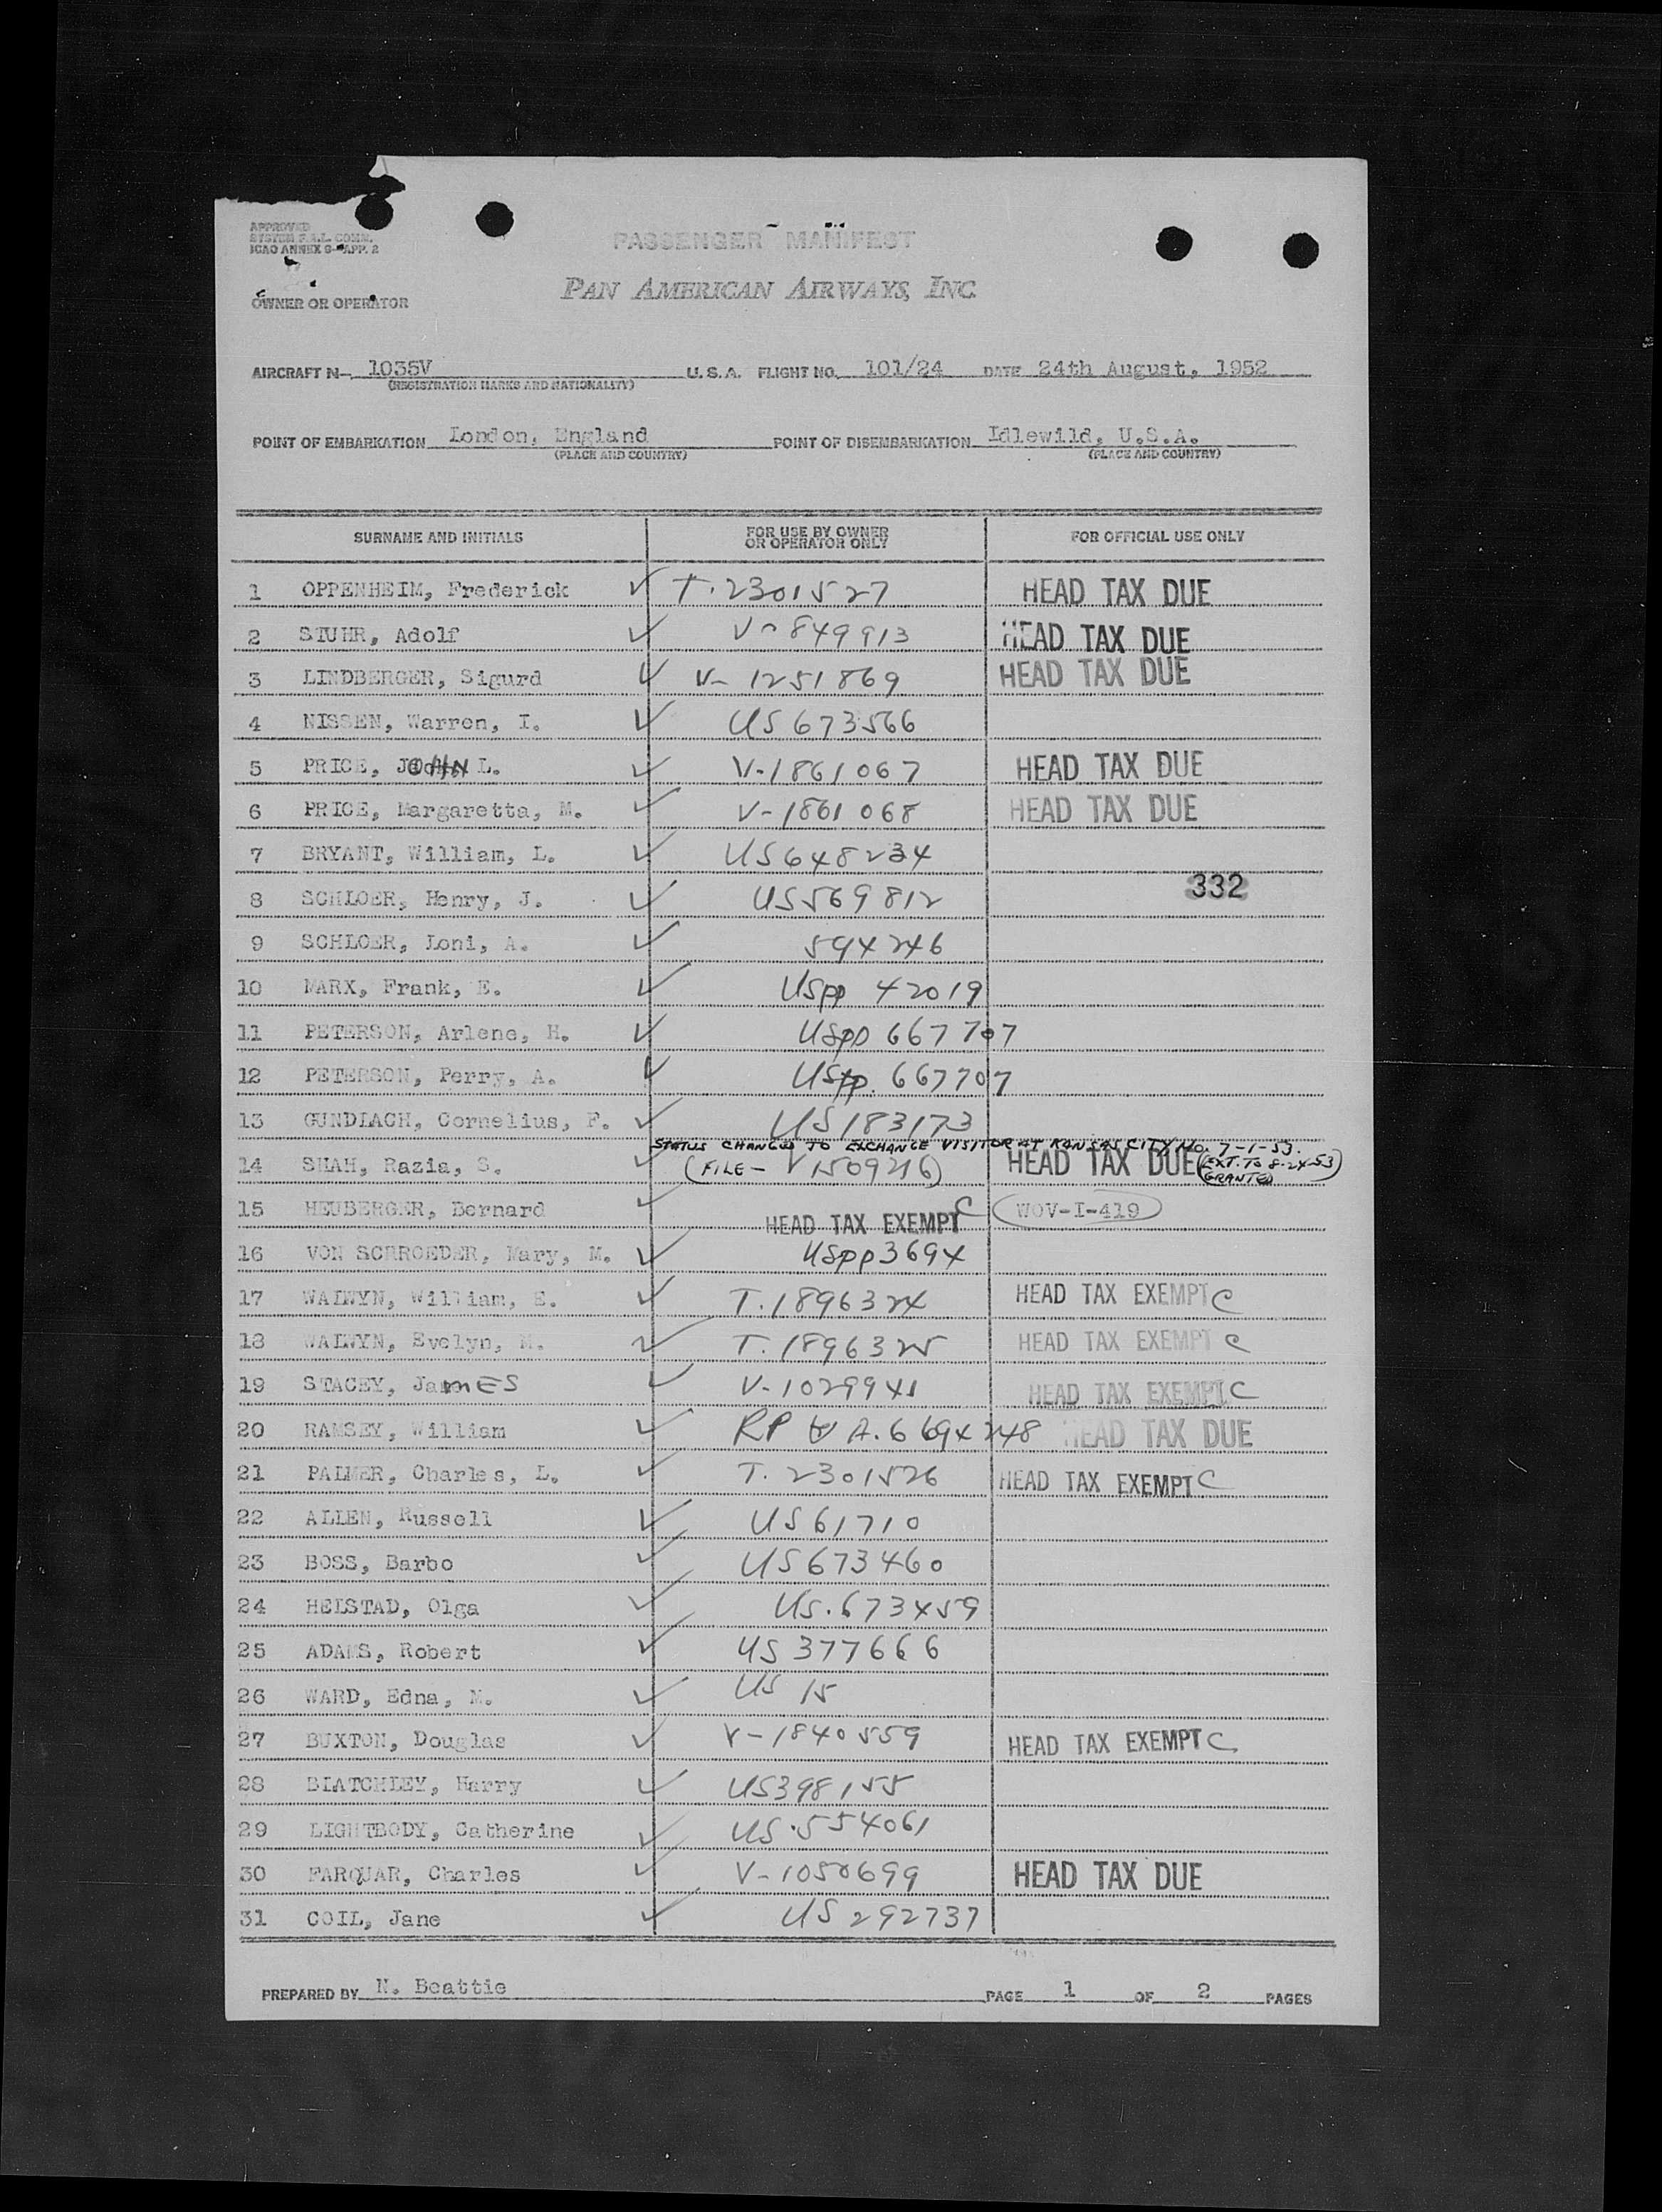 APPROVED
SYSTEM F.A.L. COMM.
ICAO ANNEX 9-APP. 2
PASSENGER MANIFEST
OWNER OR OPERATOR
PAN AMERICAN AIRWAYS, INC.
AIRCRAFT N- 1035V U.S.A. FLIGHT NO. 101/24 DATE 24th August, 1952
(REGISTRATION MARKS AND NATIONALITY)
POINT OF EMBARKATION London, England POINT OF DISEMBARKATION Idlewild, U.S.A.
(PLACE AND COUNTRY) (PLACE AND COUNTRY)
SURNAME AND INITIALS FOR USE BY OWNER OR OPERATOR ONLY FOR OFFICIAL USE ONLY
1 OPPENHEIM, Frederick ✓ T.2301527 HEAD TAX DUE
2 STUHR, Adolf ✓ V-849913 HEAD TAX DUE
3 LINDBERGER, Sigurd ✓ V-1251869 HEAD TAX DUE
4 NISSEN, Warren, I. ✓ US673566
5 PRICE, JOHN L. ✓ V-1861067 HEAD TAX DUE
6 PRICE, Margaretta, M. ✓ V-1861068 HEAD TAX DUE
7 BRYANT, William, L. ✓ US648234
332
8 SCHLOER, Henry, J. ✓ US569812
9 SCHLOER, Loni, A. ✓ 594246
10 MARX, Frank, E. ✓ USpp 42019
11 PETERSON, Arlene, H. ✓ USpp 667707
12 PETERSON, Perry, A. ✓ USpp. 667707
13 GUNDLACH, Cornelius, F. ✓ US183173
STATUS CHANGED TO EXCHANGE VISITOR AT KANSAS CITY MO. 7-1-53.
14 SHAH, Razia, S. ✓ (FILE- V1509216) HEAD TAX DUE (EXT. TO 8-24-53 GRANTED)
15 HEUBERGER, Bernard ✓ HEAD TAX EXEMPT C WOV-I-419
16 VON SCHROEDER, Mary, M. ✓ USpp3694
17 WALWYN, William, E. ✓ T.1896324 HEAD TAX EXEMPT C
18 WALWYN, Evelyn, M. ✓ T.1896325 HEAD TAX EXEMPT C
19 STACEY, JamES ✓ V-1029941 HEAD TAX EXEMPT C
20 RAMSEY, William ✓ RP A.6694248 HEAD TAX DUE
21 PALMER, Charles, L. ✓ T.2301526 HEAD TAX EXEMPT C
22 ALLEN, Russell ✓ US61710
23 BOSS, Barbo ✓ US673460
24 HELSTAD, Olga ✓ US.673459
25 ADAMS, Robert ✓ US377666
26 WARD, Edna, M. ✓ US 15
27 BUXTON, Douglas ✓ V-1840559 HEAD TAX EXEMPT C
28 BLATCHLEY, Harry ✓ US398155
29 LIGHTBODY, Catherine ✓ US.554061
30 FARQUAR, Charles ✓ V-1050699 HEAD TAX DUE
31 COIL, Jane ✓ US292737
PREPARED BY N. Beattie PAGE 1 OF 2 PAGES